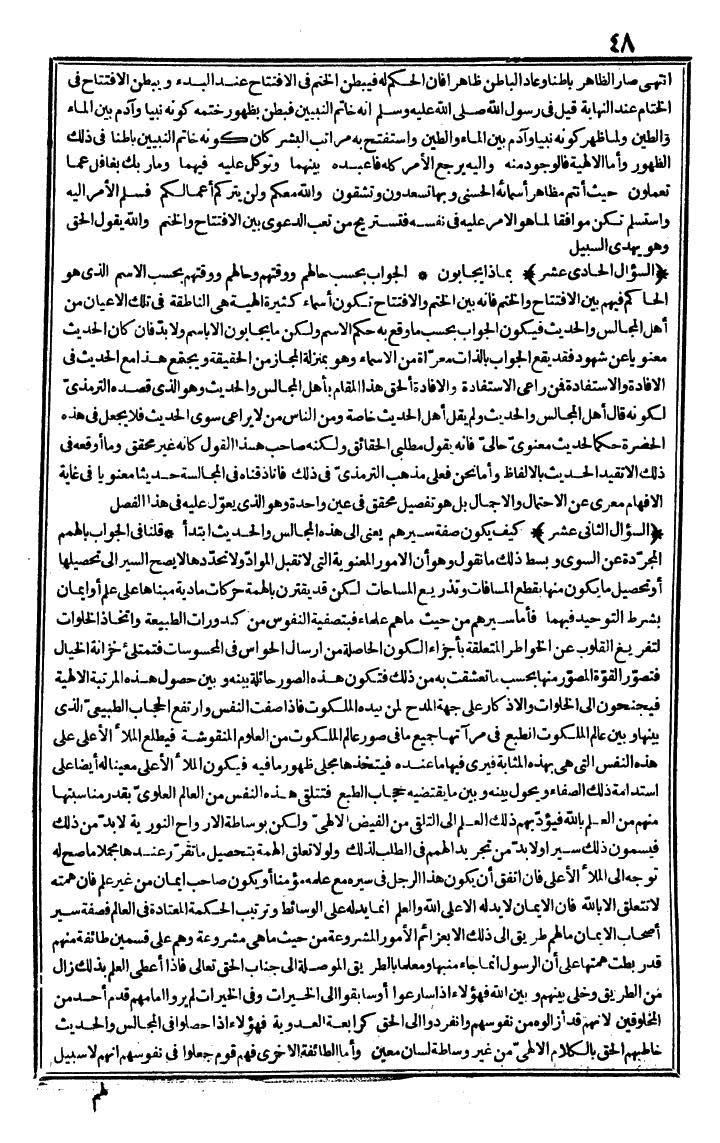 ٤٨
انتهى صار الظاهر باطنا وعاد الباطن ظاهرا فان الحكم له فيبطن الختم فى الافتتاح عند البدء ويبطن الافتتاح فى
الختام عند النهاية قيل فى رسول الله صلى الله عليه وسلم انه خاتم النبيين فبطن بظهور ختمه كونه نبيا وآدم بين الماء
والطين ولما ظهر كونه نبيا وآدم بين الماء والطين واستفتح به مراتب البشر كان كونه خاتم النبيين باطنا فى ذلك
الظهور وأما الالهية فالوجود منه واليه يرجع الأمر كله فاعبده بينهما وتوكل عليه فيهما وما ربك بغافل عما
تعملون حيث أنتم مظاهر أسمائه الحسنى وبها تسعدون وتشقون والله معكم ولن يتركم أعمالكم فسلم الأمر اليه
واستسلم تكن موافقا لما هو الامر عليه فى نفسه فتستريح من تعب الدعوى بين الافتتاح والختم والله يقول الحق
وهو يهدى السبيل
﴿السؤال الحادى عشر﴾ بماذا يجابون * الجواب بحسب حالهم ووقتهم وحالهم ووقتهم بحسب الاسم الذى هو
الحاكم فيهم بين الافتتاح والختم فانه بين الختم والافتتاح تكون أسماء كثيرة الهية هى الناطقة فى تلك الاعيان من
أهل المجالس والحديث فيكون الجواب بحسب ما وقع به حكم الاسم ولكن ما يجابون الا باسم ولا بد فان كان الحديث
معنويا عن شهود فقد يقع الجواب بالذات معراة من الاسماء وهو بمنزلة المجاز من الحقيقة ويجتمع هذا مع الحديث فى
الافادة والاستفادة فمن راعى الاستفادة والافادة ألحق هذا المقام بأهل المجالس والحديث وهو الذى قصده الترمذىّ
لكونه قال أهل المجالس والحديث ولم يقل أهل الحديث خاصة ومن الناس من لا يراعى سوى الحديث فلا يجعل فى هذه
الحضرة حكما لحديث معنوىّ حالىّ فانه يقول مطلبى الحقائق ولكنه صاحب هذا القول كانه غير محقق وما أوقعه فى
ذلك الا تقيد الحديث بالالفاظ وأما نحن فعلى مذهب الترمذىّ فى ذلك فانا ذقناه فى المجالسة حديثا معنويا فى غاية
الافهام معرى عن الاحتمال والاجمال بل هو تفصيل محقق فى عين واحدة وهو الذى يعوّل عليه فى هذا الفصل
﴿السؤال الثانى عشر﴾ كيف يكون صفة سيرهم يعنى الى هذه المجالس والحديث ابتدأ * قلنا فى الجواب بالهمم
المجرّدة عن السوى وبسط ذلك ما نقول وهو أن الامور المعنوية التى لا تقبل الموادّ ولا تحدّدها لا يصح السير الى تحصيلها
أو تحصيل ما يكون منها بقطع المسافات وتذريع المساحات لكن قد يقترن بالهمة حركات مادية مبناها على علم أو ايمان
بشرط التوحيد فيهما فأما سيرهم من حيث ما هم علماء فبتصفية النفوس من كدورات الطبيعة واتخاذ الخلوات
لتفريغ القلوب عن الخواطر المتعلقة بأجزاء الكون الحاصلة من ارسال الحواس فى المحسوسات فتمتلئ خزانة الخيال
فتصوّر القوّة المصوّر منها بحسب ما تعشقت به من ذلك فتكون هذه الصور حائلة بينه وبين حصول هذه المرتبة الالهية
فيجنحون الى الخلوات والاذكار على جهة المدح لمن بيده الملكوت فاذا صفت النفس وارتفع الحجاب الطبيعىّ الذى
بينها وبين عالم الملكوت انطبع فى مرآتها جميع ما فى صور عالم الملكوت من العلوم المنقوشة فيطلع الملأ الأعلى على
هذه النفس التى هى بهذه المثابة فيرى فيها ما عنده فيتخذها مجلى ظهور ما فيه فيكون الملأ الأعلى معينا له أيضا على
استدامة ذلك الصفاء ويحول بينه وبين ما يقتضيه حجاب الطبع فتتلقى هذه النفس من العالم العلوىّ بقدر مناسبتها
منهم من العلم بالله فيؤدّيهم ذلك العلم الى التلقى من الفيض الالهىّ ولكن بوساطة الارواح النورية لا بدّ من ذلك
فيسمون ذلك سيرا ولا بدّ من تجريد الهمم فى الطلب لذلك ولولا تعلق الهمة بتحصيل ما تقرّر عندها مجملا ما صح له
توجه الى الملأ الأعلى فان اتفق أن يكون هذا الرجل فى سيره مع علمه مؤمنا أو يكون صاحب ايمان من غير علم فان همته
لا تتعلق الا بالله فان الايمان لا يدله الا على الله والعلم انما يدله على الوسائط وترتيب الحكمة المعتادة فى العالم فصفة سير
أصحاب الايمان ما لهم طريق الى ذلك الا بعزائم الأمور المشروعة من حيث ما هى مشروعة وهم على قسمين طائفة منهم
قد ربطت همتها على أن الرسول انما جاء منبها ومعلما بالطريق الموصلة الى جناب الحق تعالى فاذا أعطى العلم بذلك زال
من الطريق وخلى بينهم وبين الله فهؤلاء اذا سارعوا أو سابقوا الى الخيرات وفى الخيرات لم يروا امامهم قدم أحد من
المخلوقين لانهم قد أزالوه من نفوسهم وانفردوا الى الحق كرابعة العدوية فهؤلاء اذا حصلوا فى المجالس والحديث
خاطبهم الحق بالكلام الالهىّ من غير وساطة لسان معين وأما الطائفة الاخرى فهم قوم جعلوا فى نفوسهم انهم لا سبيل
لهم